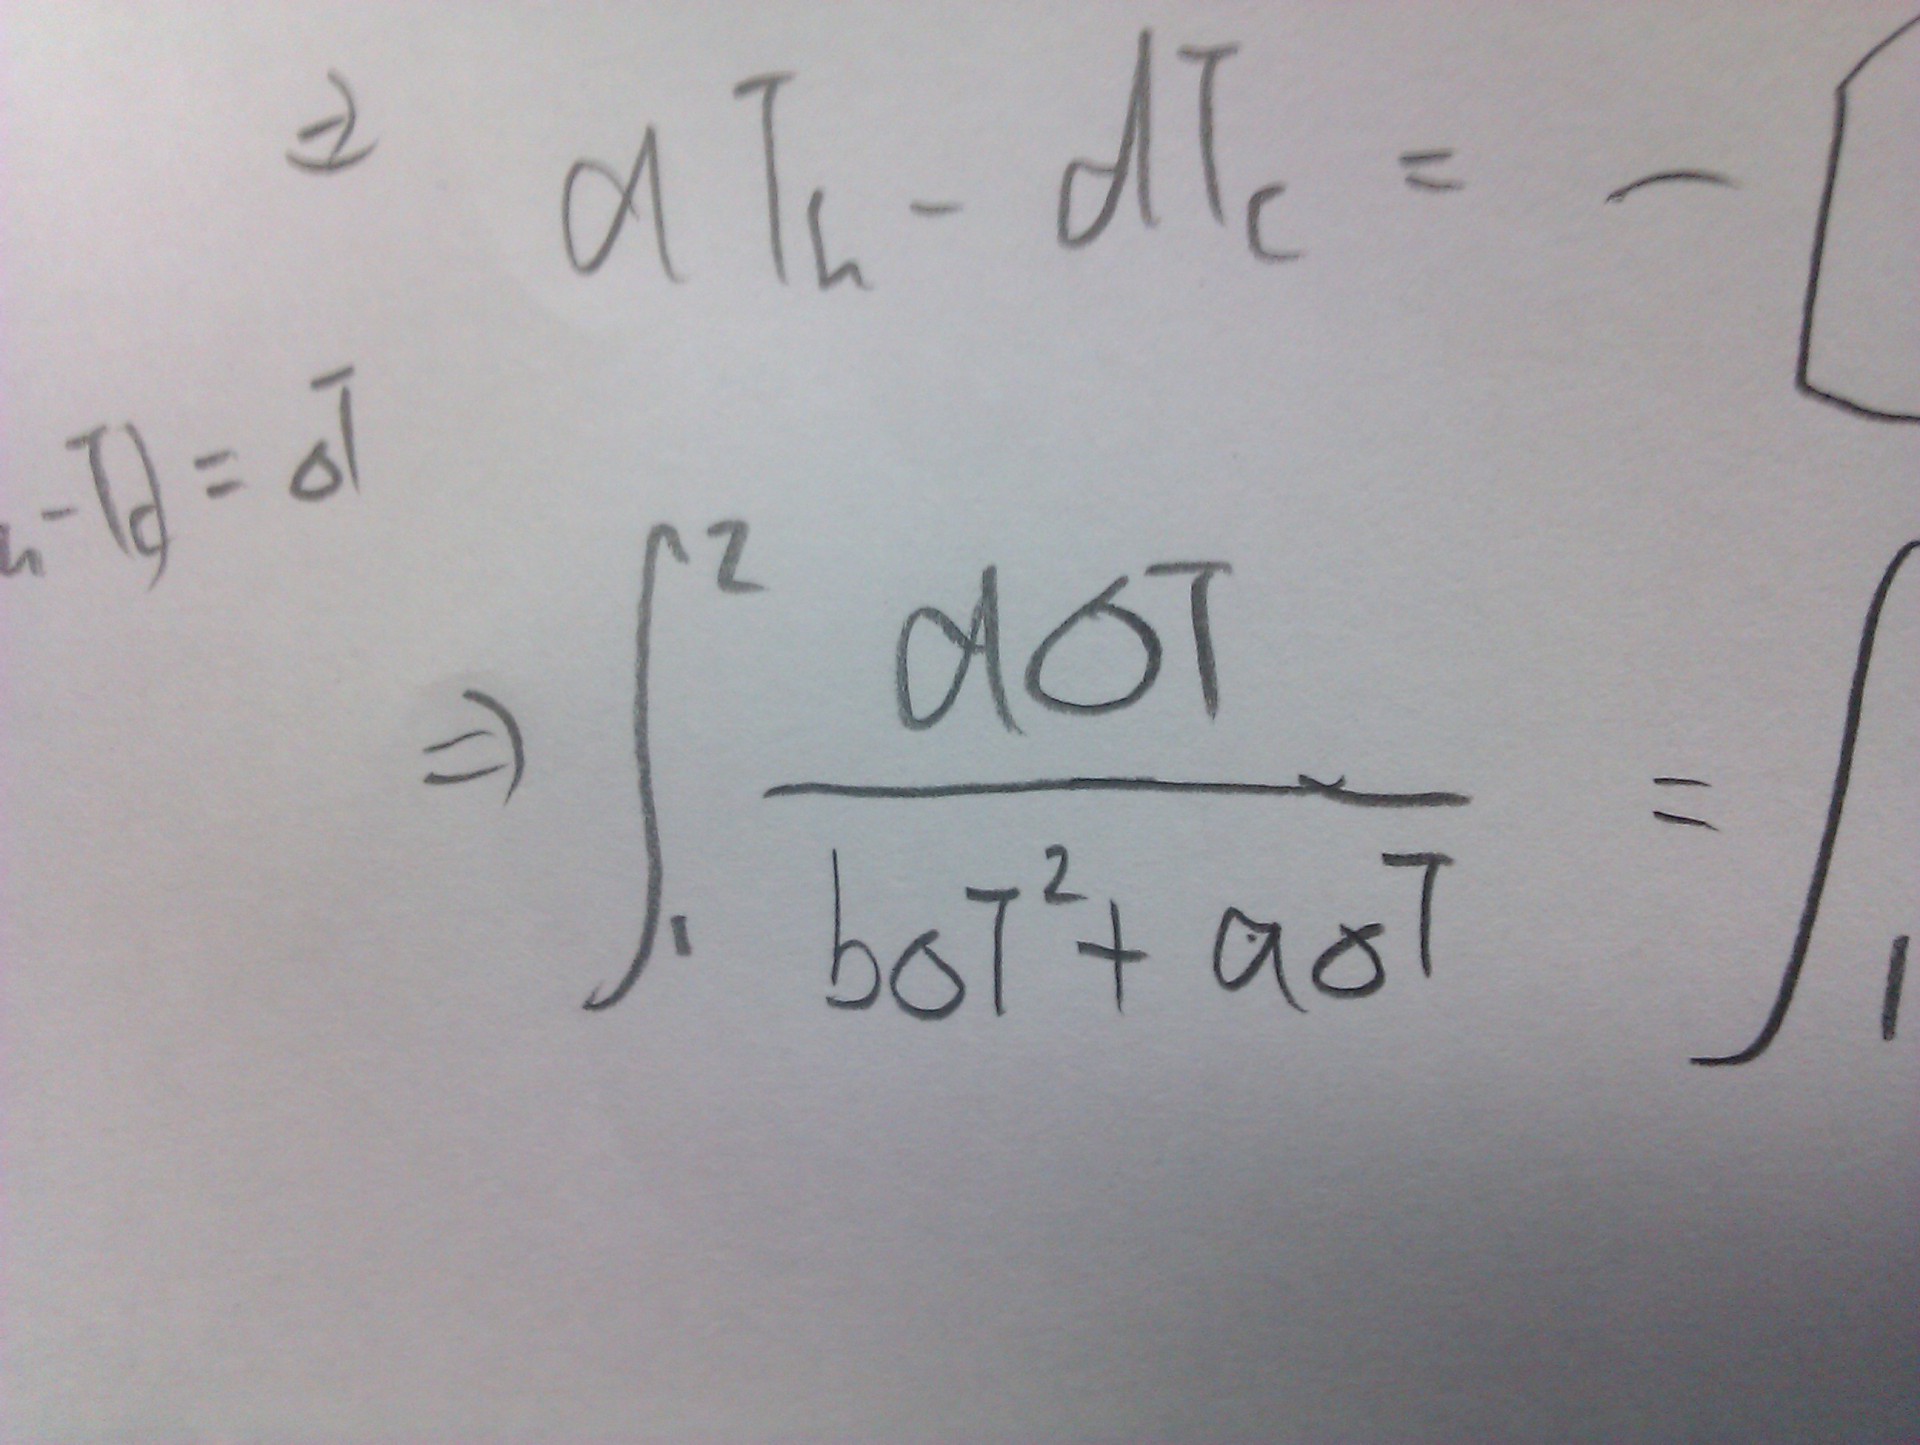 ⇒ dT_h - dT_c = -
h - T_c) = ΔT
⇒ ∫_1^2 dΔT / (bΔT^2 + aΔT) = ∫_1